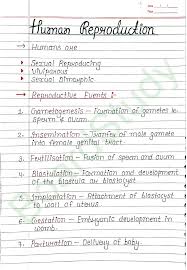 Human Reproduction
→ Humans are
• Sexual Reproducing
• Viviparous
• Sexual Dimorphic
→ Reproductive Events :-
1. Gametogenesis - Formation of gametes ie
Sperm & Ovum.
2. Insemination - Transfer of male gamete
into female genital tract.
3. Fertilisation - Fusion of sperm and ovum
4. Blastulation - Formation and development
of the blastula as blastocyst.
5. Implantation - Attachment of blastocyst
to wall of uterus.
6. Gestation - Embryonic development in
womb.
7. Parturation - Delivery of baby.